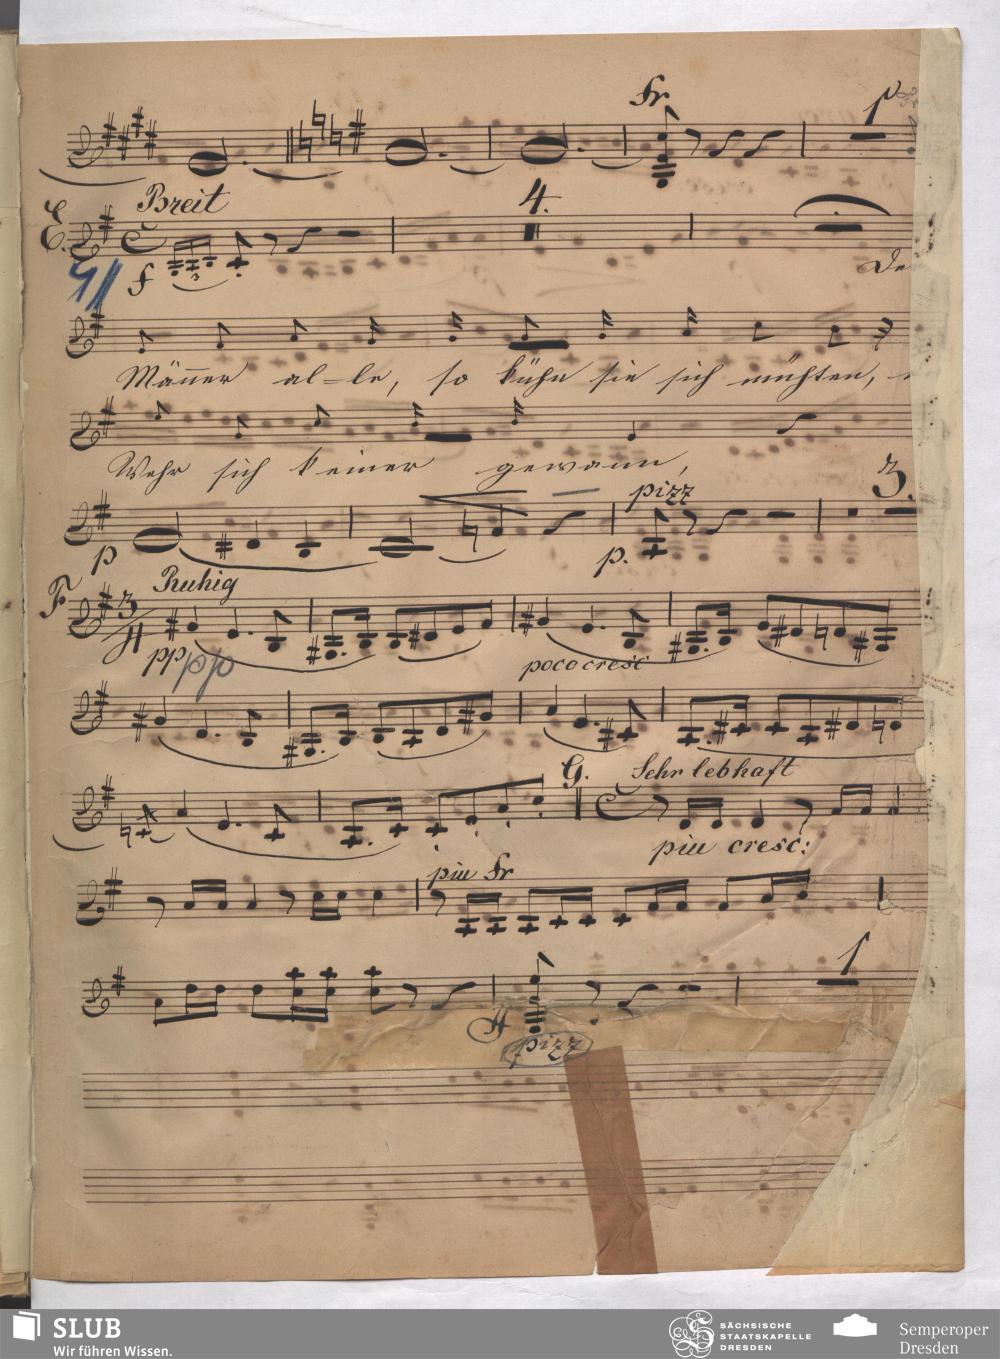 fr
1
E.
Breit
4.
f
3
De
Männer al-le, so kühn sie sich mühten,
Wehr sich keiner gewann,
pizz
3.
p
p.
F
Ruhig
3
4
pp pp
poco cresc
G.
Sehr lebhaft
piu cresc:
piu fr
1
H
pizz
SLUB
Wir führen Wissen.
SÄCHSISCHE
STAATSKAPELLE
DRESDEN
Semperoper
Dresden